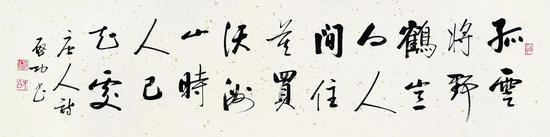 孤雲
將野
鶴豈
向人
間住
莫買
沃洲
山時
人已
知處
唐人詩
啓功书